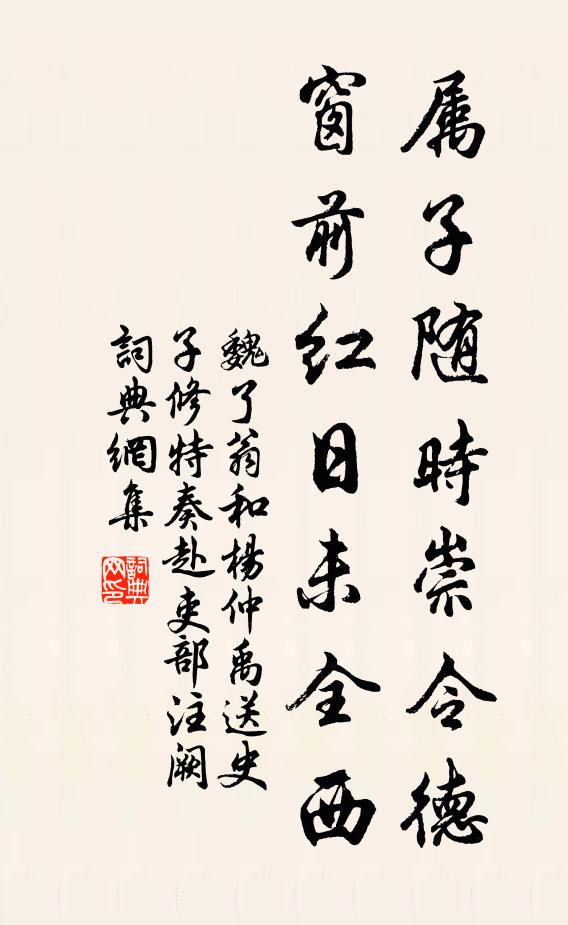 属子随時崇令德
窗前紅日未全西
魏了翁和楊仲禹送史
子修特奏赴吏部注阙
詞典網集
詞典网印